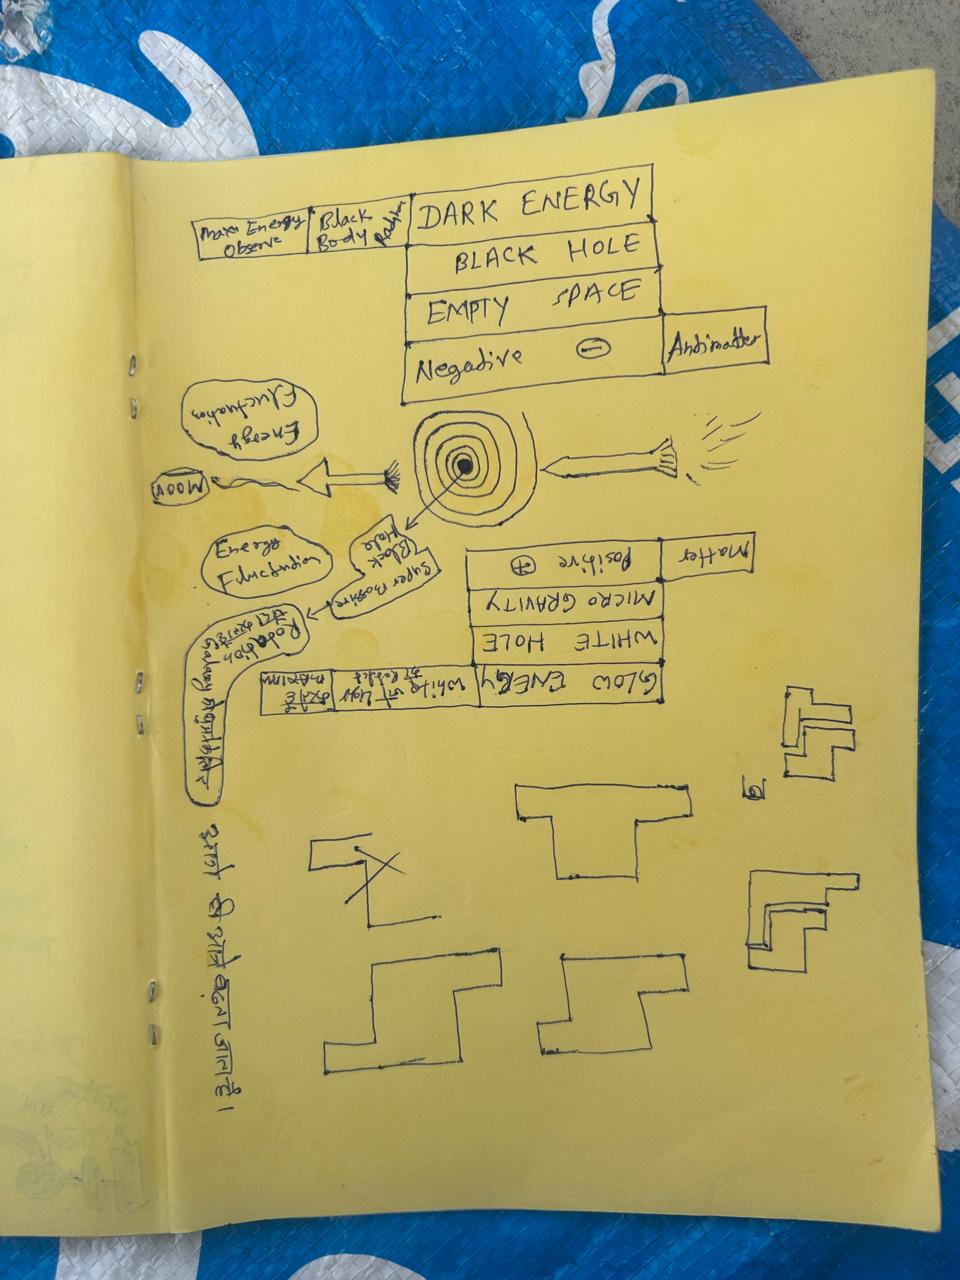 Maxi Energy
Observe
Black
Body
DARK ENERGY
BLACK HOLE
EMPTY SPACE
Negative ⊖
Antimatter
Energy
Fluctuation
MOON
Energy
Fluctuation
Super Massive
Black
Hole
Matter
Positive ⊕
MICRO GRAVITY
WHITE HOLE
GLOW ENERGY
White
Rotation
आगे ही आगे बढ़ता जाता है।